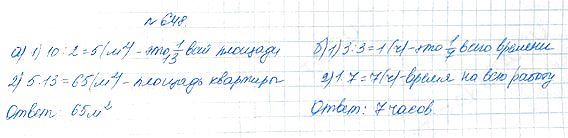 № 648
а) 1) 10 : 2 = 5 (м²) - это 1/13 всей площади
2) 5·13 = 65 (м²) - площадь квартиры
Ответ: 65 м²
б) 1) 3:3 = 1 (ч) - это 1/7 всего времени
2) 1·7 = 7 (ч) - время на всю работу
Ответ: 7 часов.